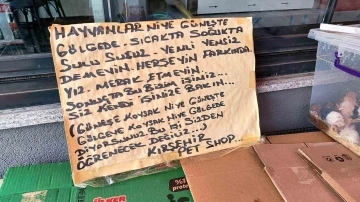 HAYVANLAR NİYE GÜNEŞTE
GÖLGEDE. SICAKTA SOĞUKTA
SULU SUSUZ. YEMLİ YEMSİZ
DEMEYİN. HERŞEYİN FARKINDA
YIZ. MERAK ETMEYİN...
SONUÇTA BU BİZİM İŞİMİZ...
SİZ KENDİ İŞİNİZE BAKIN...
(GÜNEŞE KOYSAK NİYE GÜNEŞTE
GÖLGEYE KOYSAK NİYE GÖLGEDE
DİYORSUNUZ. BU İŞİ SİZDEN
ÖĞRENECEK DEĞİLİZ...)
KIRŞEHİR
PET SHOP...
ÜLKER